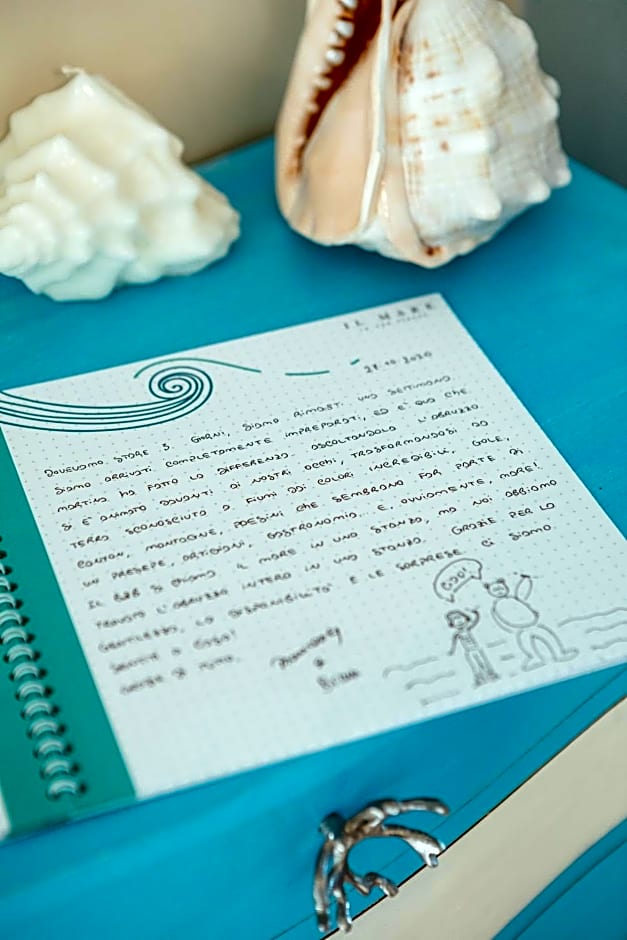 IL MARE
IN UNA STANZA
27.10.2020
DOVEVAMO STARE 3 GIORNI, SIAMO RIMASTI UNA SETTIMANA.
SIAMO ARRIVATI COMPLETAMENTE IMPREPARATI, ED È QUI CHE
MARTINA HA FATTO LA DIFFERENZA. ASCOLTANDOLA L'ABRUZZO
SI È ANIMATO DAVANTI AI NOSTRI OCCHI, TRASFORMANDOSI DA
TERRA SCONOSCIUTA A FIUMI DAI COLORI INCREDIBILI, GOLE,
CANYON, MONTAGNE, PAESINI CHE SEMBRANO FAR PARTE DI
UN PRESEPE, ARTIGIANI, GASTRONOMIA E, OVVIAMENTE, MARE!
IL B&B SI CHIAMA IL MARE IN UNA STANZA, MA NOI ABBIAMO
TROVATO L'ABRUZZO INTERO IN UNA STANZA. GRAZIE PER LA
GENTILEZZA, LA DISPONIBILITÀ E LE SORPRESE. CI SIAMO
SENTITI A CASA!
GRAZIE DI TUTTO.
CIAO!